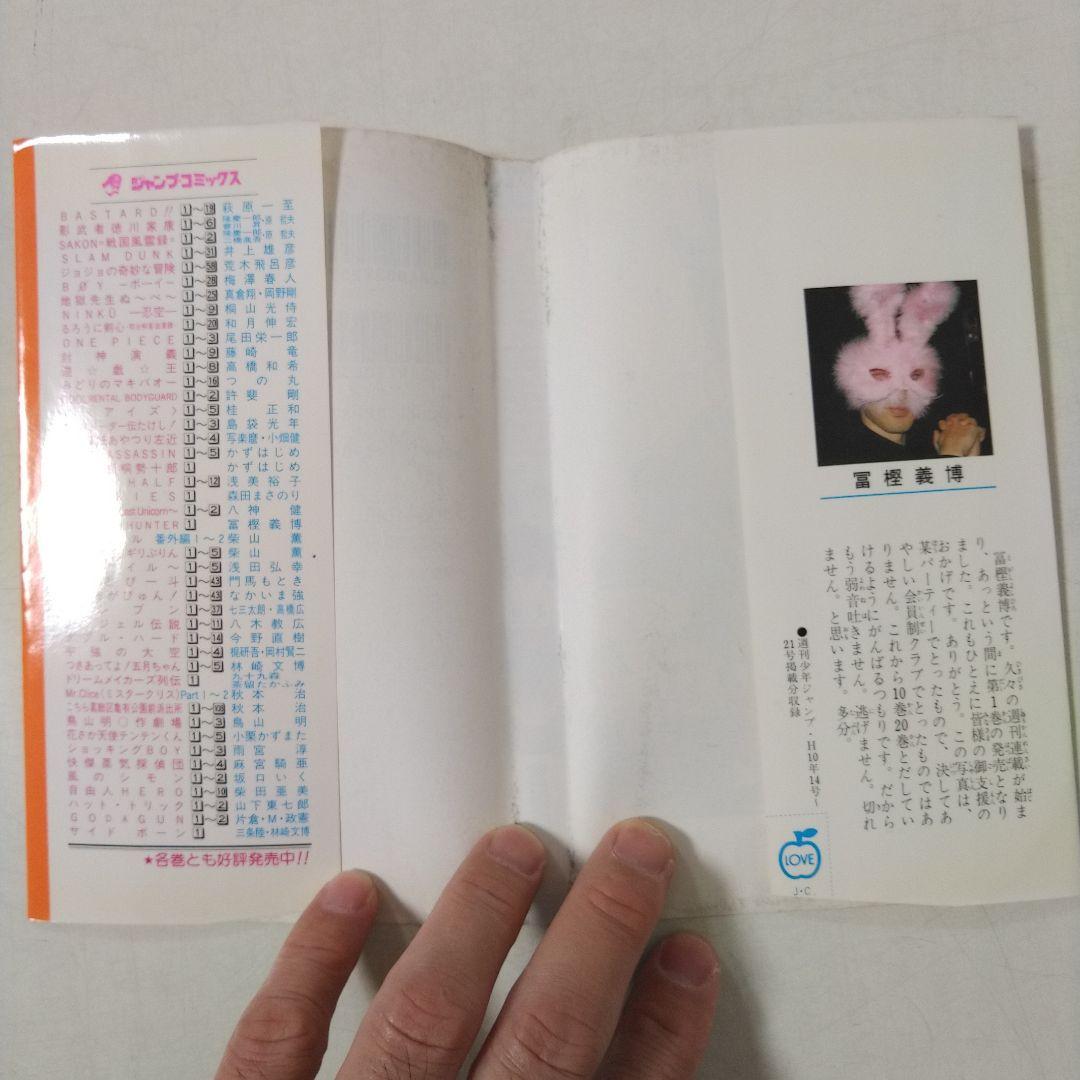 ジャンプ・コミックス
BASTARD!! 1〜18 萩原一至
影武者徳川家康 1〜6 隆慶一郎・原哲夫
SAKON=戦国風雲録= 1〜2 隆慶一郎・原哲夫
SLAM DUNK 1〜31 井上雄彦
ジョジョの奇妙な冒険 荒木飛呂彦
BØY —ボーイ— 梅澤春人
地獄先生ぬ〜べ〜 1〜25 真倉翔・岡野剛
NINKŪ —忍空— 1〜9 桐山光侍
るろうに剣心 1〜20 和月伸宏
ONE PIECE 1〜3 尾田栄一郎
封神演義 1〜9 藤崎竜
遊☆戯☆王 1〜8 高橋和希
みどりのマキバオー 1〜16 つの丸
MENTAL BODYGUARD 1〜2 許斐剛
アイズ〉 1〜5 桂正和
ーダー伝たけし! 1〜3 島袋光年
あやつり左近 1〜4 写楽麿・小畑健
ASSASSIN 1〜5 かずはじめ
勢十郎 1 かずはじめ
HALF 1〜12 浅美裕子
IES 1 森田まさのり
ost Unicorn〜 1〜2 八神健
HUNTER 1 冨樫義博
ル 番外編1〜2 柴山薫
ギリぷりん 1〜5 柴山薫
イル〜 1〜5 浅田弘幸
び一斗 1〜43 門馬もとき
がぴゅん! 1〜43 なかいま強
プン 1〜37 七三太朗・高橋広
ジェル伝説 1〜11 八木教広
ブル・ハード 1〜14 今野直樹
強の大空 1〜4 梶研吾・岡村賢二
つきあってよ!五月ちゃん 1〜5 林崎文博
ドリームメイカーズ列伝 1 九十九森
Mr.Clice(ミスタークリス) Part 1〜2 秋本治
こちら葛飾区亀有公園前派出所 秋本治
鳥山明○作劇場 1〜3 鳥山明
花さか天使テンテンくん 1〜5 小栗かずまた
ショッキングBOY 1〜3 雨宮淳
快傑蒸気探偵団 1〜4 麻宮騎亜
風のシモン 1〜2 坂口いく
自由人HERO 1〜10 柴田亜美
ハット・トリック 1〜2 山下東七郎
GODAGUN 1〜2 片倉・M・政憲
サイドボーン 1 三条陸・林崎文博
★各巻とも好評発売中!!
冨樫義博
冨樫義博です。久々の週刊連載が始ま
り、あっという間に第1巻の発売となり
ました。これもひとえに皆様の御支援の
おかげです。ありがとう。この写真は、
某パーティーでとったもので、決してあ
やしい会員制クラブでとったものではあ
りません。これから10巻20巻とだしてい
けるようにがんばるつもりです。だから
もう弱音吐きません。逃げません。切れ
ません。と思います。多分。
●週刊少年ジャンプ・H10年14号〜
21号掲載分収録
LOVE
J・C